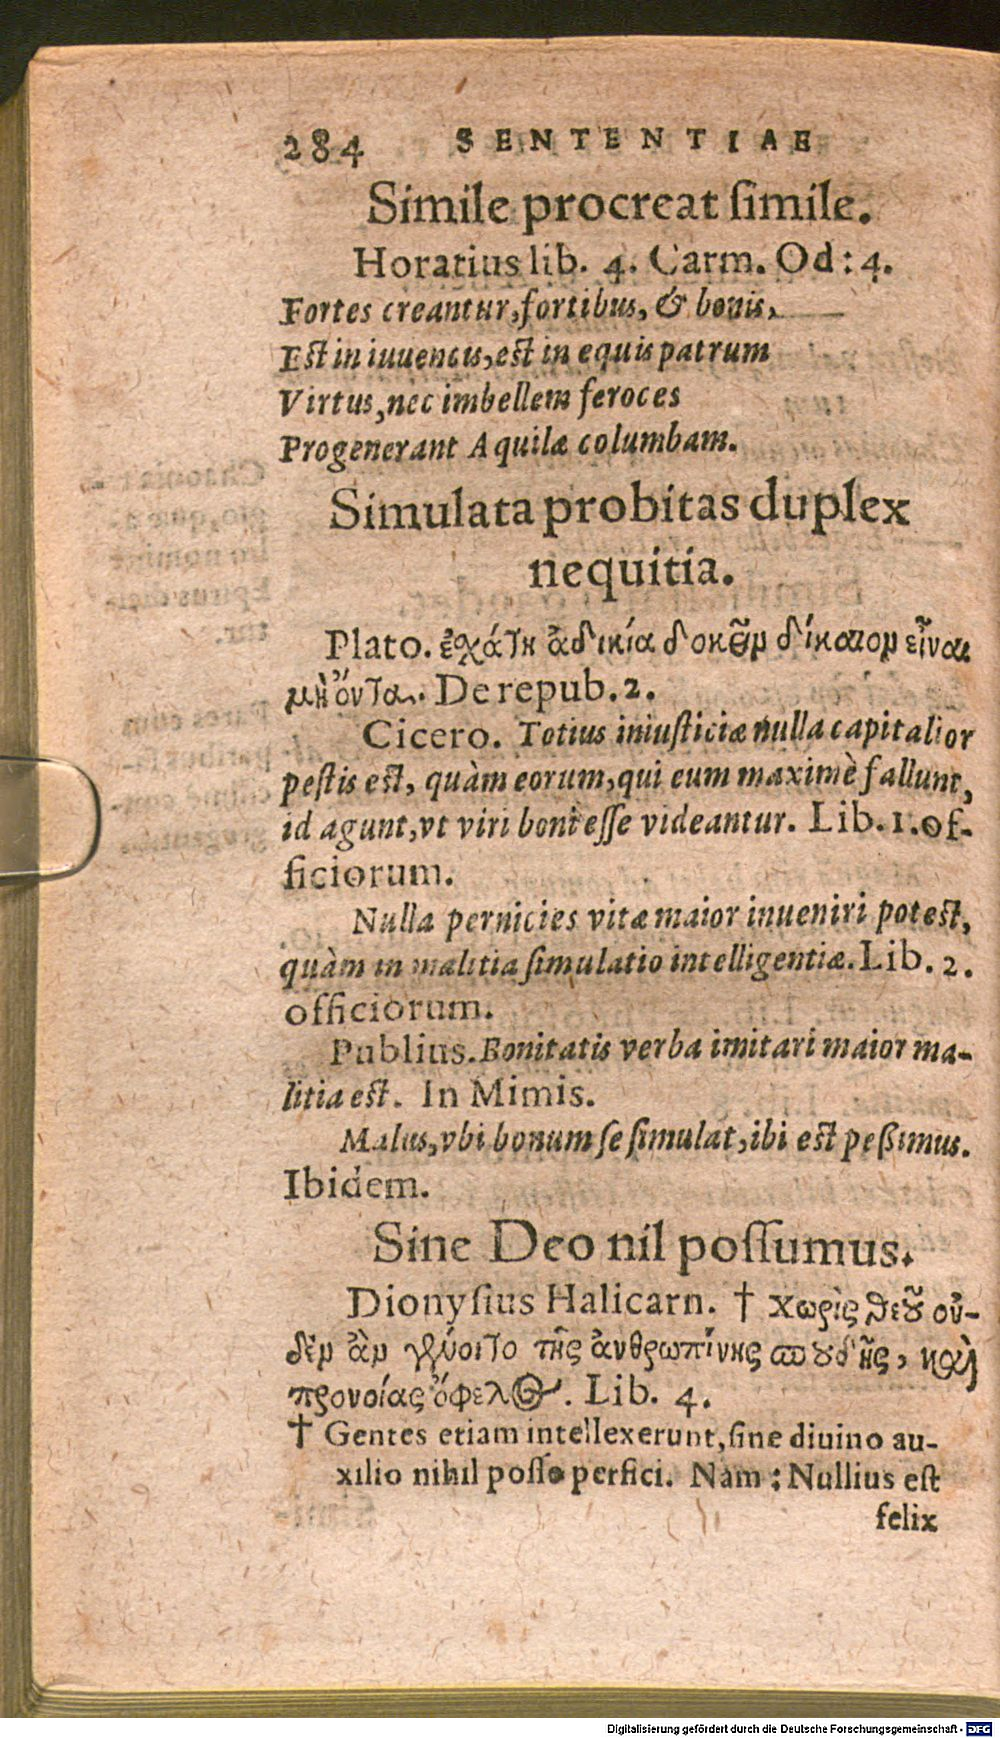 284 SENTENTIAE
Simile procreat ſimile.
Horatius lib. 4. Carm. Od: 4.
Fortes creantur, fortibus, & bonis,
Eſt in iuuencis, eſt in equis patrum
Virtus, nec imbellem feroces
Progenerant Aquilæ columbam.
Simulata probitas duplex
nequitia.
Plato. ἐχάτη ἀδικία δοκεῖν δίκαιον εἶναι
μὴ ὄντα. De repub. 2.
Cicero. Totius iniuſticiæ nulla capitalior
peſtis eſt, quàm eorum, qui cum maximè fallunt,
id agunt, vt viri boni eſſe videantur. Lib. 1. of-
ficiorum.
Nulla pernicies vitæ maior inueniri poteſt,
quàm in malitia ſimulatio intelligentiæ. Lib. 2.
officiorum.
Publius. Bonitatis verba imitari maior ma-
litia eſt. In Mimis.
Malus, vbi bonum ſe ſimulat, ibi eſt peßimus.
Ibidem.
Sine Deo nil poſſumus.
Dionyſius Halicarn. † χωρὶς θεοῦ οὐ-
δὲν ἂν γένοιτο τῆς ἀνθρωπίνης σπουδῆς, καὶ
προνοίας ὄφελος. Lib. 4.
† Gentes etiam intellexerunt, ſine diuino au-
xilio nihil poſſe perfici. Nam: Nullius eſt
felix
Digitalisierung gefördert durch die Deutsche Forschungsgemeinschaft - DFG